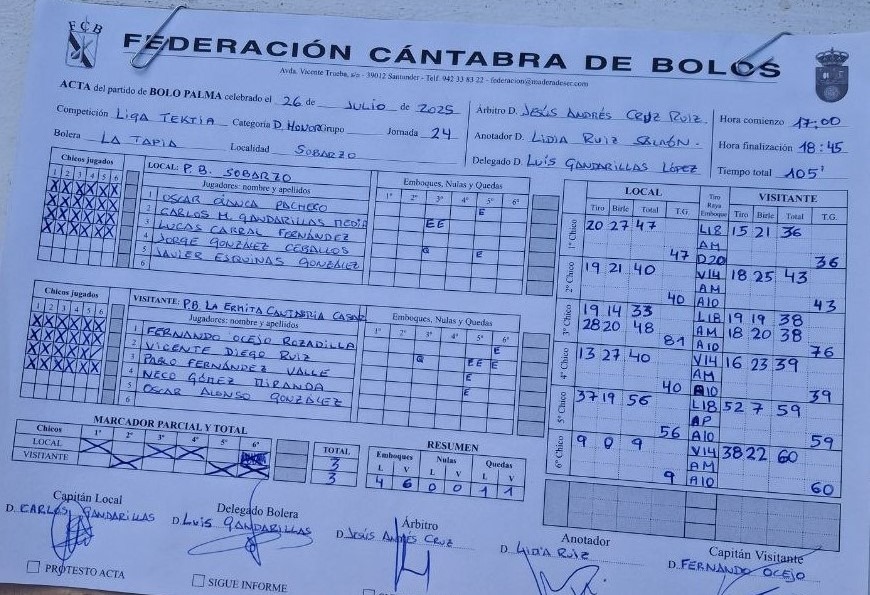 FCB
FEDERACIÓN CÁNTABRA DE BOLOS
Avda. Vicente Trueba, s/n - 39012 Santander - Telf. 942 33 83 22 - federacion@maderadeser.com
ACTA del partido de BOLO PALMA celebrado el 26 de JULIO de 2025
Competición LIGA TEKTIA Categoría D. HONOR Grupo Jornada 24
Bolera LA TAPIA Localidad SOBARZO
Árbitro D. JESÚS ANDRÉS CRUZ RUIZ.
Anotador D. LIDIA RUIZ
Delegado D. LUÍS GANDARILLAS LÓPEZ
Hora comienzo 17:00
Hora finalización 18:45
Tiempo total 105'
Chicos jugados
1 2 3 4 5 6
X X X X X X
X X X X X X
X X X X X X
X X X X X X
LOCAL: P.B. SOBARZO
Jugadores: nombre y apellidos
1 OSCAR CIANCA PACHECO
2 CARLOS M. GANDARILLAS
3 LUCAS CABRAL FERNÁNDEZ
4 JORGE GONZÁLEZ CEBALLOS
5 JAVIER ESQUINAS GONZÁLEZ
6
Emboques, Nulas y Quedas
1º 2º 3º 4º 5º 6º
E
EE
Q E
Chicos jugados
1 2 3 4 5 6
X X X X X X
X X X X X
X X X X X X
X X X X X X
VISITANTE: P.B. LA ERMITA CANTABRIA CASAR
Jugadores: nombre y apellidos
1 FERNANDO OCEJO ROZADILLA
2 VICENTE DIEGO RUIZ
3 PABLO FERNÁNDEZ VALLE
4 NECO GÓMEZ MIRANDA
5 OSCAR ALONSO GONZÁLEZ
6
Emboques, Nulas y Quedas
1º 2º 3º 4º 5º 6º
E
Q EE E
E
E
LOCAL Tiro Raya Emboque VISITANTE
Tiro Birle Total T.G. Tiro Birle Total T.G.
1º Chico 20 27 47 L18 15 21 36
AM
47 D20 36
2º Chico 19 21 40 V14 18 25 43
AM
40 A10 43
3º Chico 19 14 33 L18 19 19 38
28 20 48 AM 18 20 38
81 A10 76
4º Chico 13 27 40 V14 16 23 39
AM
40 A10 39
5º Chico 37 19 56 L18 52 7 59
AP
56 A10 59
6º Chico 9 0 9 V14 38 22 60
AM
9 A10 60
MARCADOR PARCIAL Y TOTAL
Chicos 1º 2º 3º 4º 5º 6º TOTAL
LOCAL X X X 3
VISITANTE X X 3
RESUMEN
Emboques Nulas Quedas
L V L V L V
4 6 0 0 1 1
Capitán Local
D. CARLOS GANDARILLAS
Delegado Bolera
D. LUIS GANDARILLAS
Árbitro
D. JESÚS ANDRÉS CRUZ
Anotador
D. LIDIA RUIZ
Capitán Visitante
D. FERNANDO OCEJO
PROTESTO ACTA
SIGUE INFORME